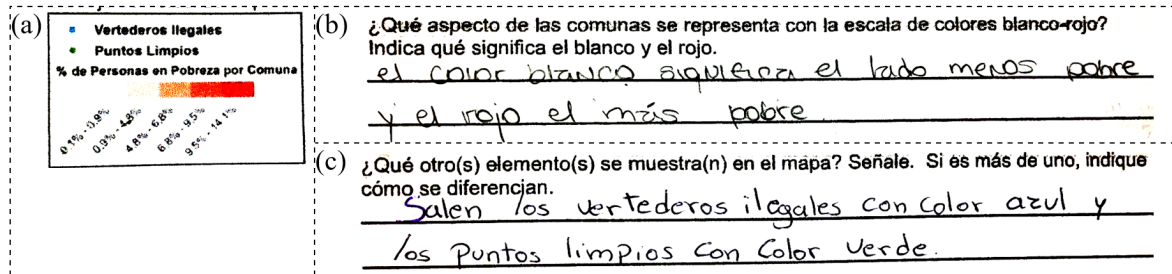 (a)
Vertederos Ilegales
Puntos Limpios
% de Personas en Pobreza por Comuna
0.1% - 0.9%
0.9% - 4.8%
4.8% - 6.8%
6.8% - 9.5%
9.5% - 14.1%
(b) ¿Qué aspecto de las comunas se representa con la escala de colores blanco-rojo?
Indica qué significa el blanco y el rojo.
el color blanco significa el lado menos pobre
y el rojo el más pobre
(c) ¿Qué otro(s) elemento(s) se muestra(n) en el mapa? Señale. Si es más de uno, indique
cómo se diferencian.
Salen los vertederos ilegales con color azul y
los puntos limpios con color verde.